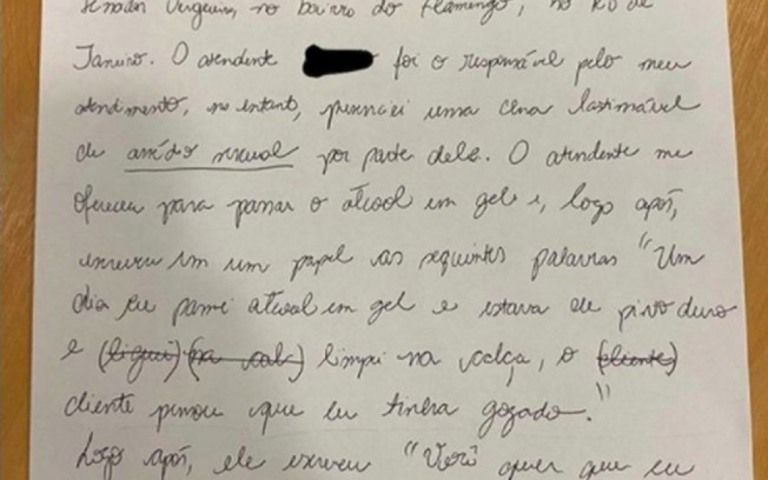 Senador Vergueiro, no bairro do Flamengo, no Rio de
Janeiro. O atendente foi o responsável pelo meu
atendimento, no entanto, presenciei uma cena lastimável
de assédio sexual por parte dele. O atendente me
ofereceu para passar o álcool em gel e, logo após,
escreveu em um papel as seguintes palavras "Um
dia eu passei álcool em gel e estava de pinto duro
e (liguei) (na calc) limpei na calça, o (cliente)
cliente pensou que eu tinha gozado."
Logo após, ele escreveu "Você quer que eu